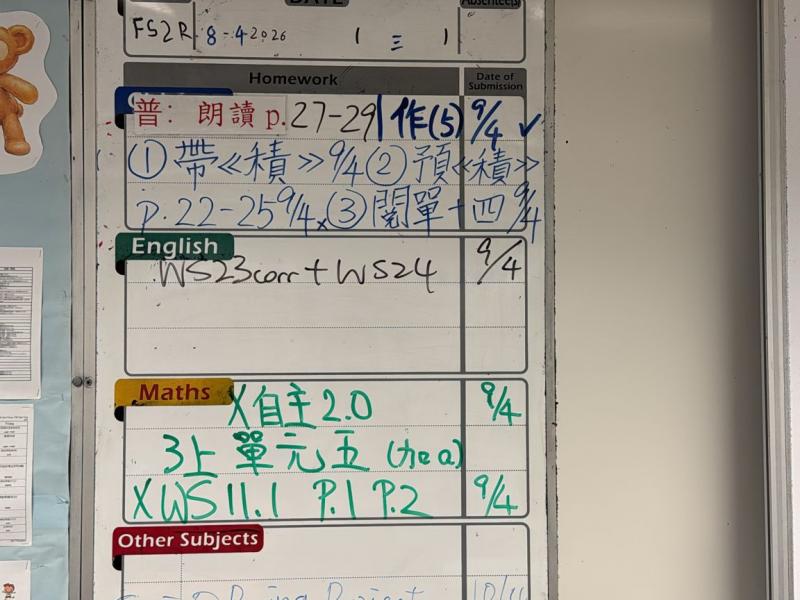 DATE
Absentee(s)
FS2R 8-4-2026 1 三 1
Homework Date of Submission
普：朗讀 p.27-29 作(5) 9/4 ✓
①帶《積》9/4②預《積》
p.22-25 9/4 ③閱單十四 9/4
English
WS23corr+WS24 9/4
Maths
X自主2.0 9/4
3上單元五
XWS11.1 P.1 P.2 9/4
Other Subjects
Project